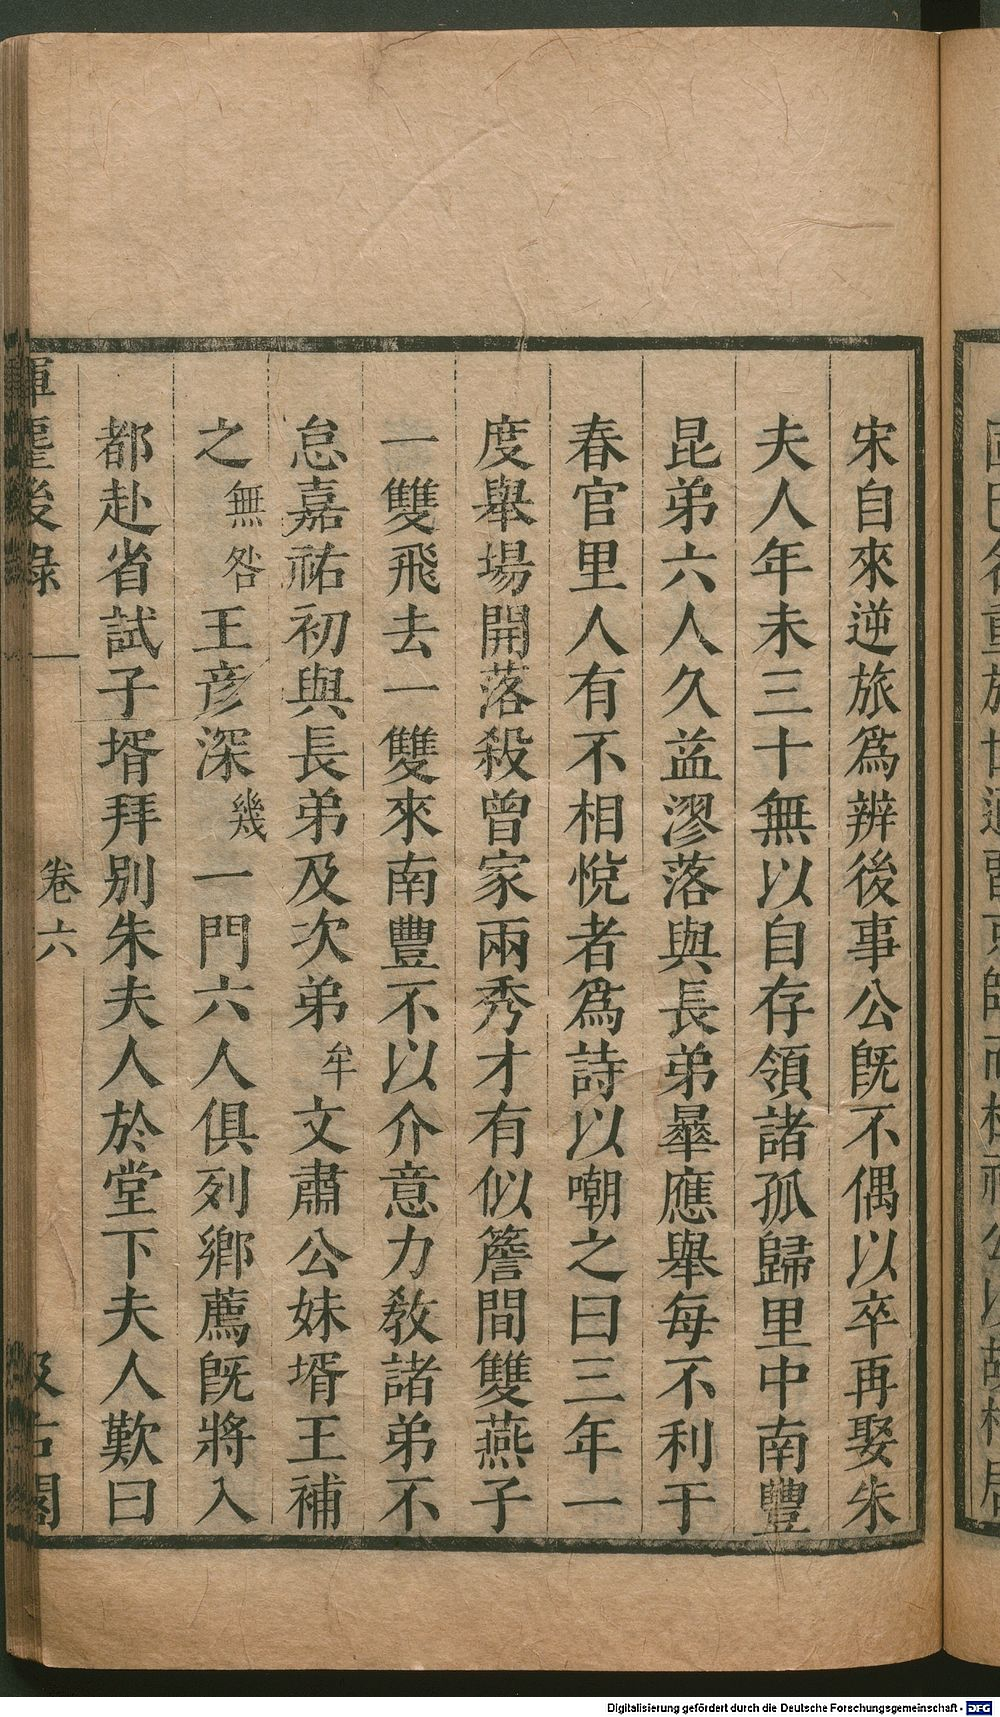 宋自來逆旅爲辨後事公旣不偶以卒再娶朱
夫人年未三十無以自存領諸孤歸里中南豐
昆弟六人久益漻落與長弟曅應舉每不利于
春官里人有不相悅者爲詩以嘲之曰三年一
度舉場開落殺曾家兩秀才有似簷間雙燕子
一雙飛去一雙來南豐不以介意力敎諸弟不
怠嘉祐初與長弟及次弟牟文肅公妹壻王補
之無咎王彥深幾一門六人俱列鄉薦旣將入
都赴省試子壻拜別朱夫人於堂下夫人歎曰
揮麈後錄
卷六
汲古閣
Digitalisierung gefördert durch die Deutsche Forschungsgemeinschaft - DFG